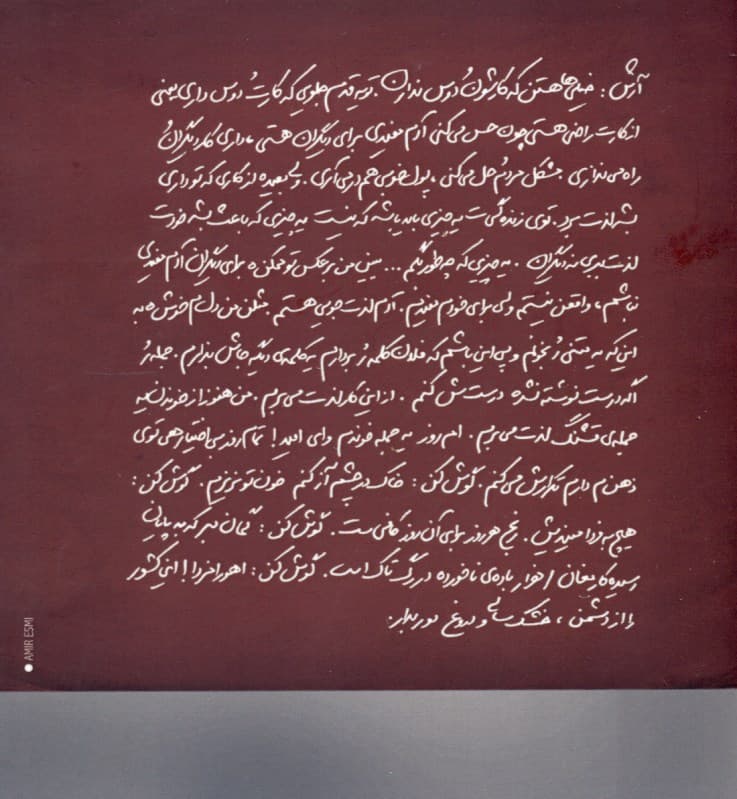 آرش : خیلی‌ها هستن که کارشون‌ُ دوس ندارن. تو یه قدم جلویی که کارت‌ُ دوس داری یعنی
از کارت راضی هستی چون حس می‌کنی آدم مفیدی برای دیگران هستی، داری کار دیگران‌ُ
راه می‌ندازی مشکل مردم‌ُ حل می‌کنی، پول خوبی هم درمی‌آری. ولی بعیده از کاری که تو داری
بشه لذت برد. توی زنده‌گیت یه چیزی باید باشه که نیست یه چیزی که باعث بشه خودت
لذت ببری نه دیگران. یه چیزی که چه‌طور بگم ... ببین من برعکس تو ممکنه برای دیگران آدم مفیدی
نباشم، واقعن نیستم ولی برای خودم مفیدم. آدم لذت‌جویی هستم مثلن من دل‌م خوش‌ه به
این‌که یه متنی‌ُ بخونم و پی این باشم که فلان کلمه‌ُ بردارم یه کلمه‌ی دیگه جاش بذارم. جمله‌ُ
اگه درست نوشته نشده درست‌ش کنم. از این کار لذت می‌برم. من هنوز از خوندن یه
جمله‌ی قشنگ لذت می‌برم. امروز یه جمله خوندم وای امید! تمام روز بی‌اختیار هی توی
ذهن‌م دارم تکرارش می‌کنم. گوش کن : خاک در چشم آز کنم خون تو نریزم. گوش کن :
هیچ به فردا میندیش. رنج هر روز برای آن روز کافی‌ست. گوش کن : گمان مبر که به پایان
رسید کار مغان / هزار باده‌ی ناخورده در رگ تاک است. گوش کن : اهورامزدا! این کشور
را از دشمن، خشک‌سالی و دروغ دور بدار.
AMIR ESMI